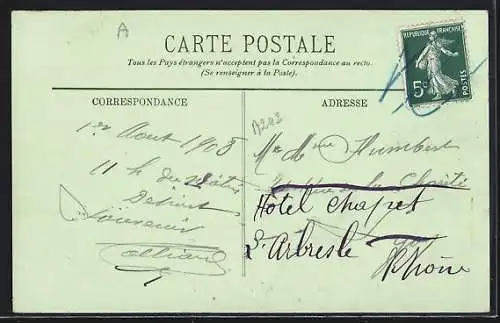 A
CARTE POSTALE
Tous les Pays étrangers n'acceptent pas la Correspondance au recto.
(Se renseigner à la Poste).
RÉPUBLIQUE FRANÇAISE
5c
POSTES
CORRESPONDANCE
ADRESSE
A243
1er Aout 1908
11 h du matin
Souvenir
Mr Mme Humbert
de la Charité
Hôtel Chapet
L'Arbresle
Rhône